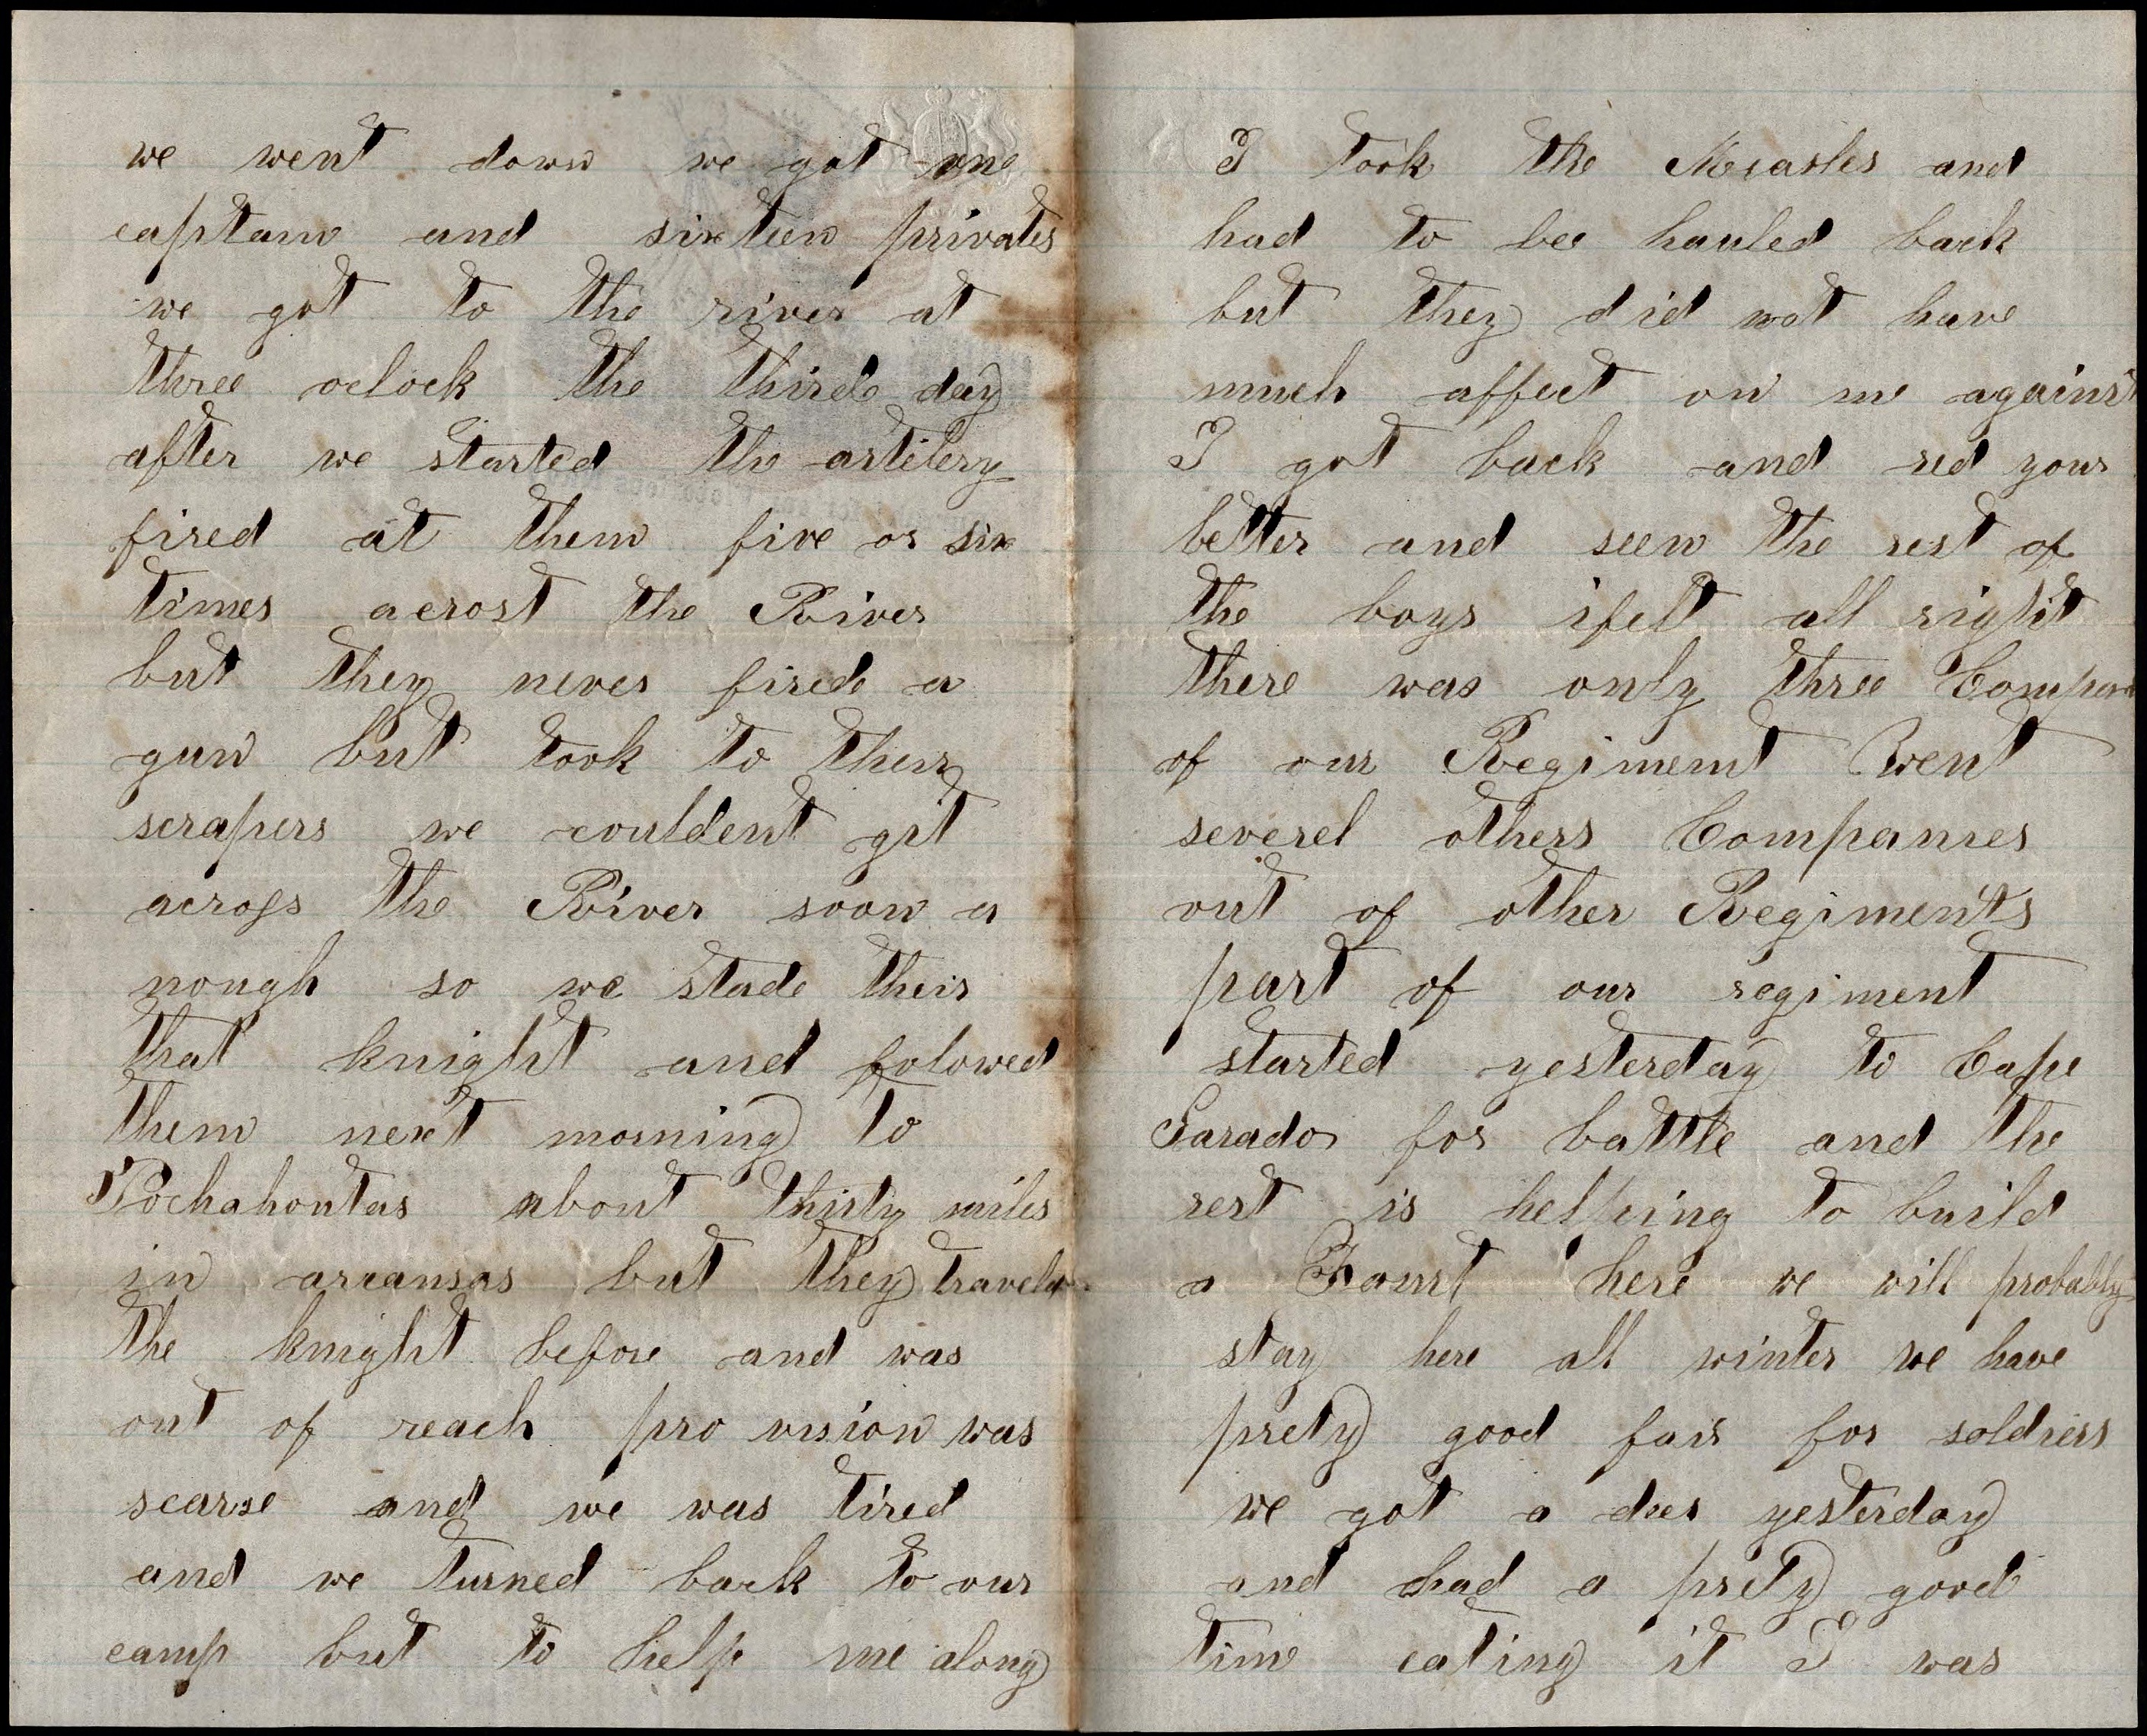 we went down we got one
captain and sixteen privates
we got to the river at
three oclock the thirde day
after we started the artilery
fired at them five or six
times acrost the River
but they never firede a
gun but took to their
scrapers we couldent git
across the River soon a
nough so we stade their
that knight and folowed
them next morning to
Pochahontas about thirty miles
in arcansas but they traveld
the knight before and was
out of reach pro vision was
scarse and we was tired
and we turned back to our
camp but to help me along
I took the Measles and
had to bee hauled back
but they did not have
much affect on me against
I got back and red your
letter and seen the rest of
the boys ifelt all right
there was only three Compan
of our Regiment went
severel others Companies
out of other Regiments
part of our regiment
started yesterday to Cape
Garado for battle and the
rest is helping to build
a here we will probably
stay here all winter we have
prety good fair for soldiers
we got a deer yesterday
and had a prety good
time eating it I was